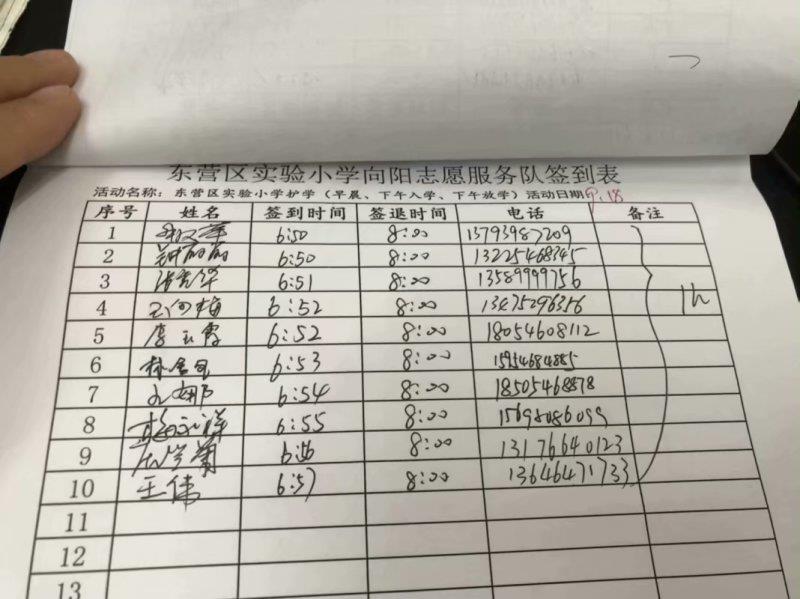 东营区实验小学向阳志愿服务队签到表
活动名称：东营区实验小学护学（早晨、下午入学、下午放学）活动日期 9.18
序号 姓名 签到时间 签退时间 电话 备注
1 6:50 8:00 13793987209
2 6:50 8:00 13225468345
3 6:51 8:00 13589999756
4 6:52 8:00 13475296356 1h
5 6:52 8:00 18054608112
6 6:53 8:00 15954684885
7 6:54 8:00 18505468878
8 6:55 8:00 15698086099
9 6:56 8:00 13176640123
10 王伟 6:57 8:00 13646471733
11
12
13